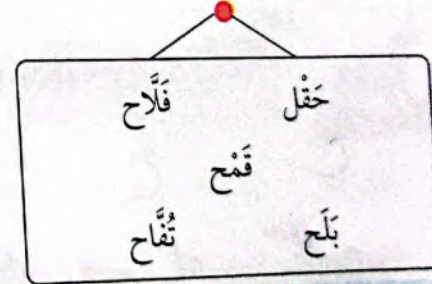 حَقْل فَلَّاح
قَمْح
بَلَح تُفَّاح